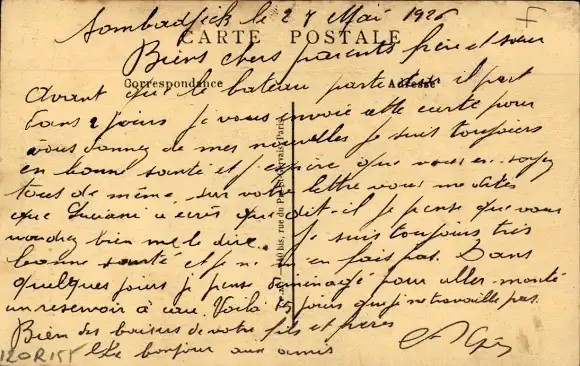 le 27 Mai 1926
F
CARTE POSTALE
Biens chers parents frère et sœur
Correspondance
Adresse
Avant que le bateau parte il part
dans 2 jours je vous envoie cette carte pour
vous donnez de mes nouvelles je suis toujours
en bonne santé et j'espère que vous en soyez
tous de même. sur votre lettre vous me dites
que Luciani a ecris que dit-il je pense que vous
voudrez bien me le dire. Je suis toujours très
bonne santé et je ne m'en fais pas. Dans
quelques jours je pense déménagé pour aller monté
un reservoir à eau. Voilà 15 jours que je ne travaille pas.
Bien des baisers de votre fils et frères
le bonjour aux amis
120R155
bis, rue du Paris